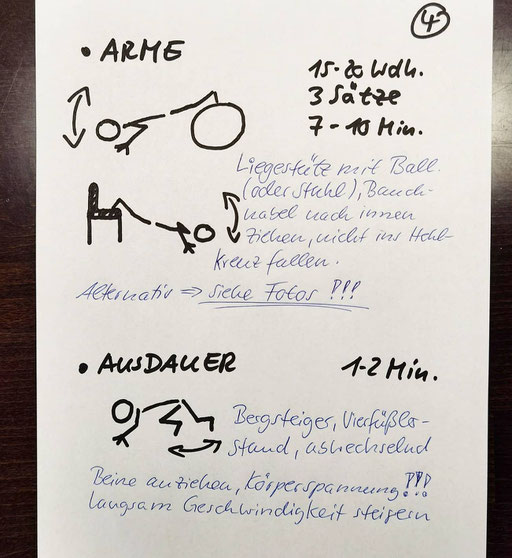 4
• ARME
15-20 Wdh.
3 Sätze
7-10 Min.
Liegestütz mit Ball.
(oder Stuhl), Bauch-
nabel nach innen
ziehen, nicht ins Hohl-
kreuz fallen.
Alternativ ⇒ siehe Fotos !!!
• AUSDAUER
1-2 Min.
Bergsteiger, Vierfüßler-
stand, abwechselnd
Beine anziehen, Körperspannung!!!
langsam Geschwindigkeit steigern